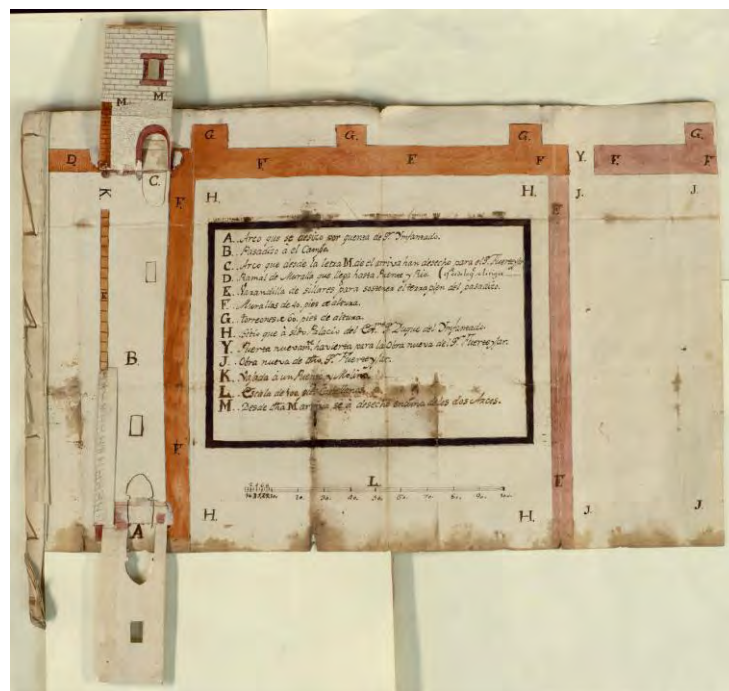 M. M.
G. G. G. G.
D. F. F. F. Y. F. F.
C.
K H. H. J. J.
F. E
A.. Arco que se desizo por quenta de S.r Ynfantado.
B.. Pasadizo a el Campo
C.. Arco que desde la letra M de el arriva han desecho para el S.r Fuerteyjar
D.. Ramal de Muralla que llega hasta Puente y Rio.
E.. de sillares para sostener el terraplen del pasadizo.
F.. Murallas de 40 pies de altura.
G.. torreones de 60 pies de altura.
H.. Sitio que à sido Palacio del Ex.mo S.r Duque del Ynfantado
Y.. Puerta nuevam.te havierta para la Obra nueva de S.r Fuerteyjar.
J.. Obra nueva de dho S.r Fuerteyjar.
K.. Vajada à un Puente y Molino
L.. Escala de 100 pies
M.. Desde dha M arriva se à desecho encima de los dos Arcos.
B.
F. E
L.
10. 20. 30. 40. 50. 60. 70. 80. 90. 100.
H. H. J. J.
A